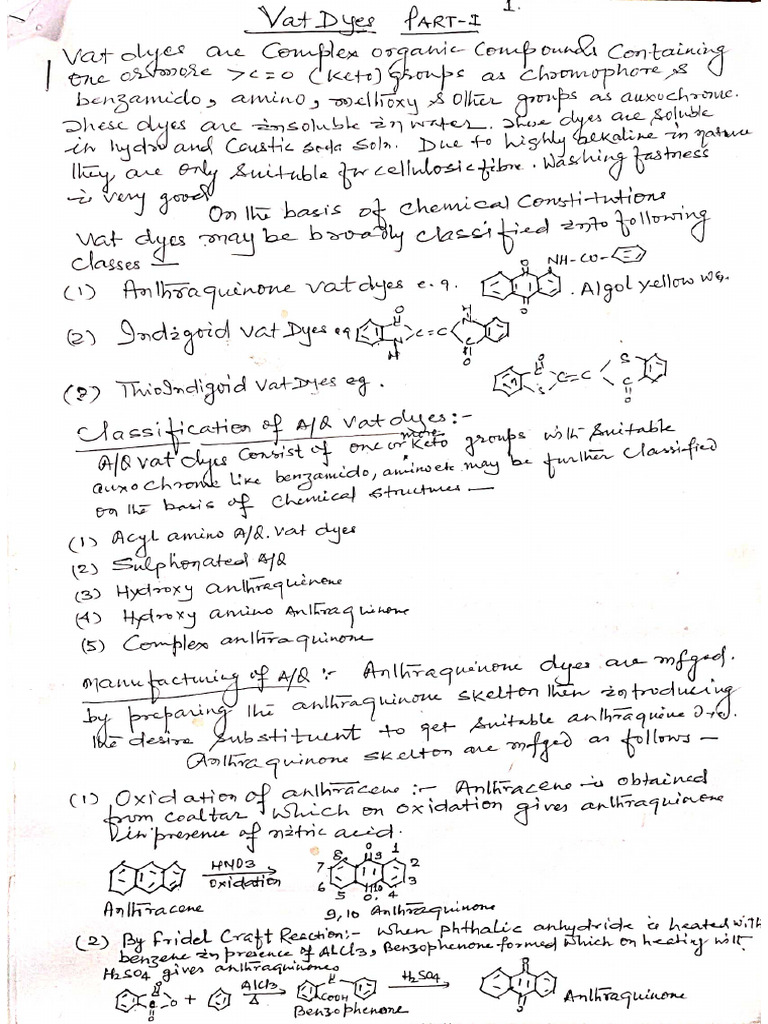 Vat Dyes PART-I 1.
Vat dyes are Complex organic Compounds Containing
one or more >C=O (Keto) groups as chromophore &
benzamido, amino, methoxy & other groups as auxochrome.
These dyes are insoluble in water. These dyes are soluble
in hydro and Caustic soda Soln. Due to highly alkaline in nature
they are only suitable for cellulosic fibre. Washing fastness
is very good
On the basis of chemical Constitutions
Vat dyes may be broadly classified into following
classes —
(1) Anthraquinone vat dyes e.g. O O NH-CO- . Algol yellow WG.
(2) Indigoid Vat Dyes eg O C N H C=C H N C O
(3) ThioIndigoid Vat Dyes eg. O C S C=C S C O
Classification of A/Q Vat dyes:-
A/Q vat dyes Consist of one or more Keto groups with Suitable
auxochrome like benzamido, amino etc may be further classified
on the basis of chemical structures —
(1) Acyl amino A/Q. vat dyes
(2) Sulphonated A/Q
(3) Hydroxy anthraquinone
(4) Hydroxy amino Anthraquinone
(5) Complex anthraquinone
Manufacturing of A/Q :- Anthraquenone dyes are mfged.
by preparing the anthraquinone skelton then introducing
the desire substituent to get suitable anthraquine
Anthraquinone skelton are mfged as follows —
(1) Oxidation of anthracene :- Anthracene is obtained
from coaltar which on oxidation gives anthraquinone
in presence of nitric acid.
HNO3 Oxidation 8 O 9 1 7 2 6 3 5 O 10 4
Anthracene 9,10 Anthraquinone
(2) By Fridel Craft Reaction:- when phthalic anhydride is heated with
benzene in presence of AlCl3, Benzophenone formed which on heating with
H2SO4 gives anthraquinones
O C O C O + AlCl3 Δ C COOH H2SO4 O O Anthraquinone
Benzophenone